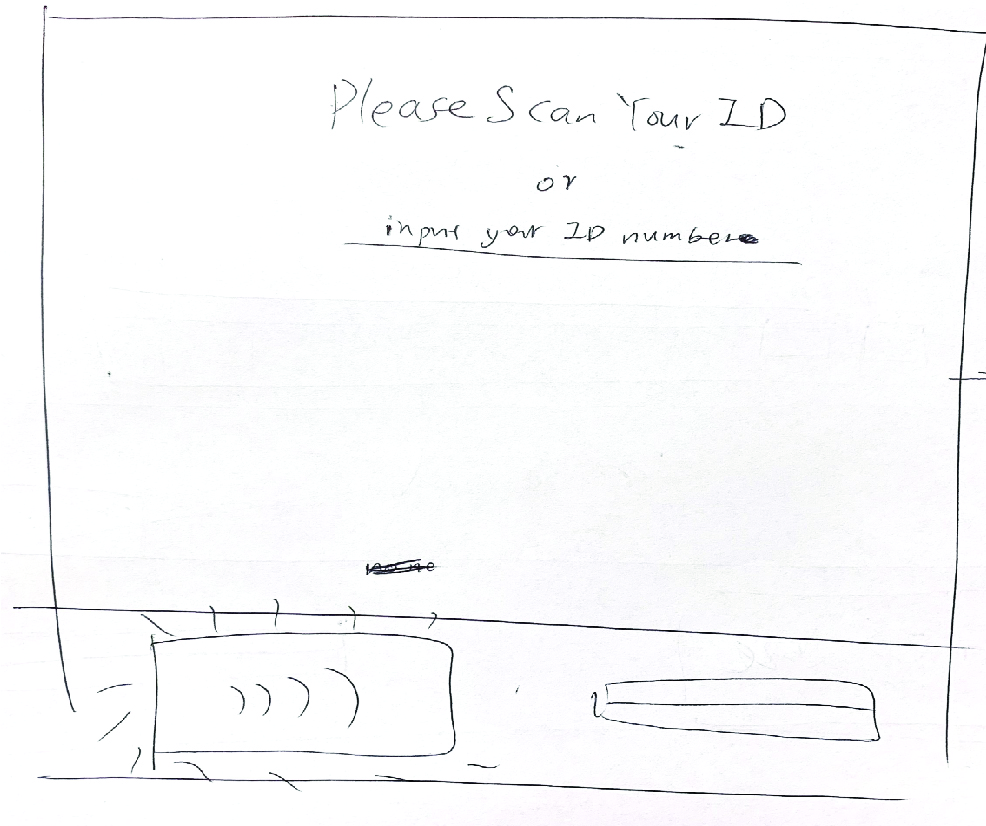 Please Scan Your ID
or
input your ID number